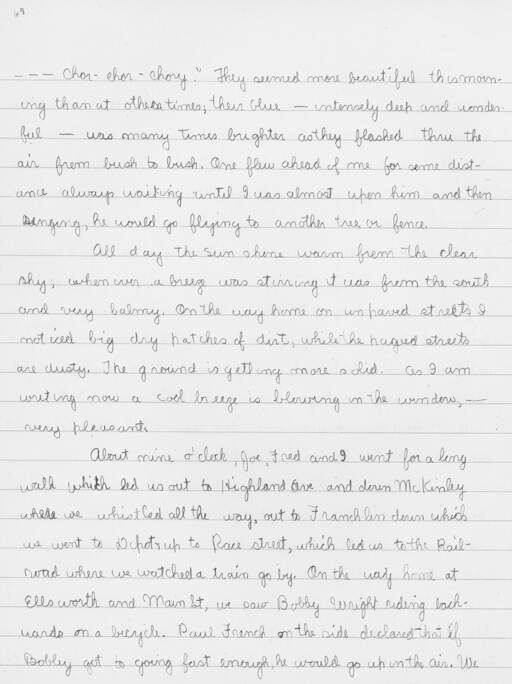 49
--- Chor- chor - chory." They seemed more beautiful this morn-
ing than at other times; their blue — intensely deep and wonder-
ful — was many times brighter as they flashed thru the
air from bush to bush. One flew ahead of me for some dist-
ance always waiting until I was almost upon him and then
singing, he would go flying to another tree or fence.
All day the sun shone warm from the clear
sky; when ever a breeze was stirring it was from the south
and very balmy. On the way home on unpaved streets I
noticed big dry patches of dirt, while the paved streets
are dusty. The ground is getting more solid. As I am
writing now a cool breeze is blowing in the window, —
very pleasant.
About nine o'clock, Joe, Fred and I went for a long
walk which led us out to Highland Ave and down McKinley
where we whistled all the way, out to Franchlin down which
we went to Depot, up to Race street, which led us to the Rail-
road where we watched a train go by. On the way home at
Ellsworth and Main St, we saw Bobby Wright riding back-
wards on a bicycle. Paul French on the side declared that if
Bobby got to going fast enough, he would go up in the air. We